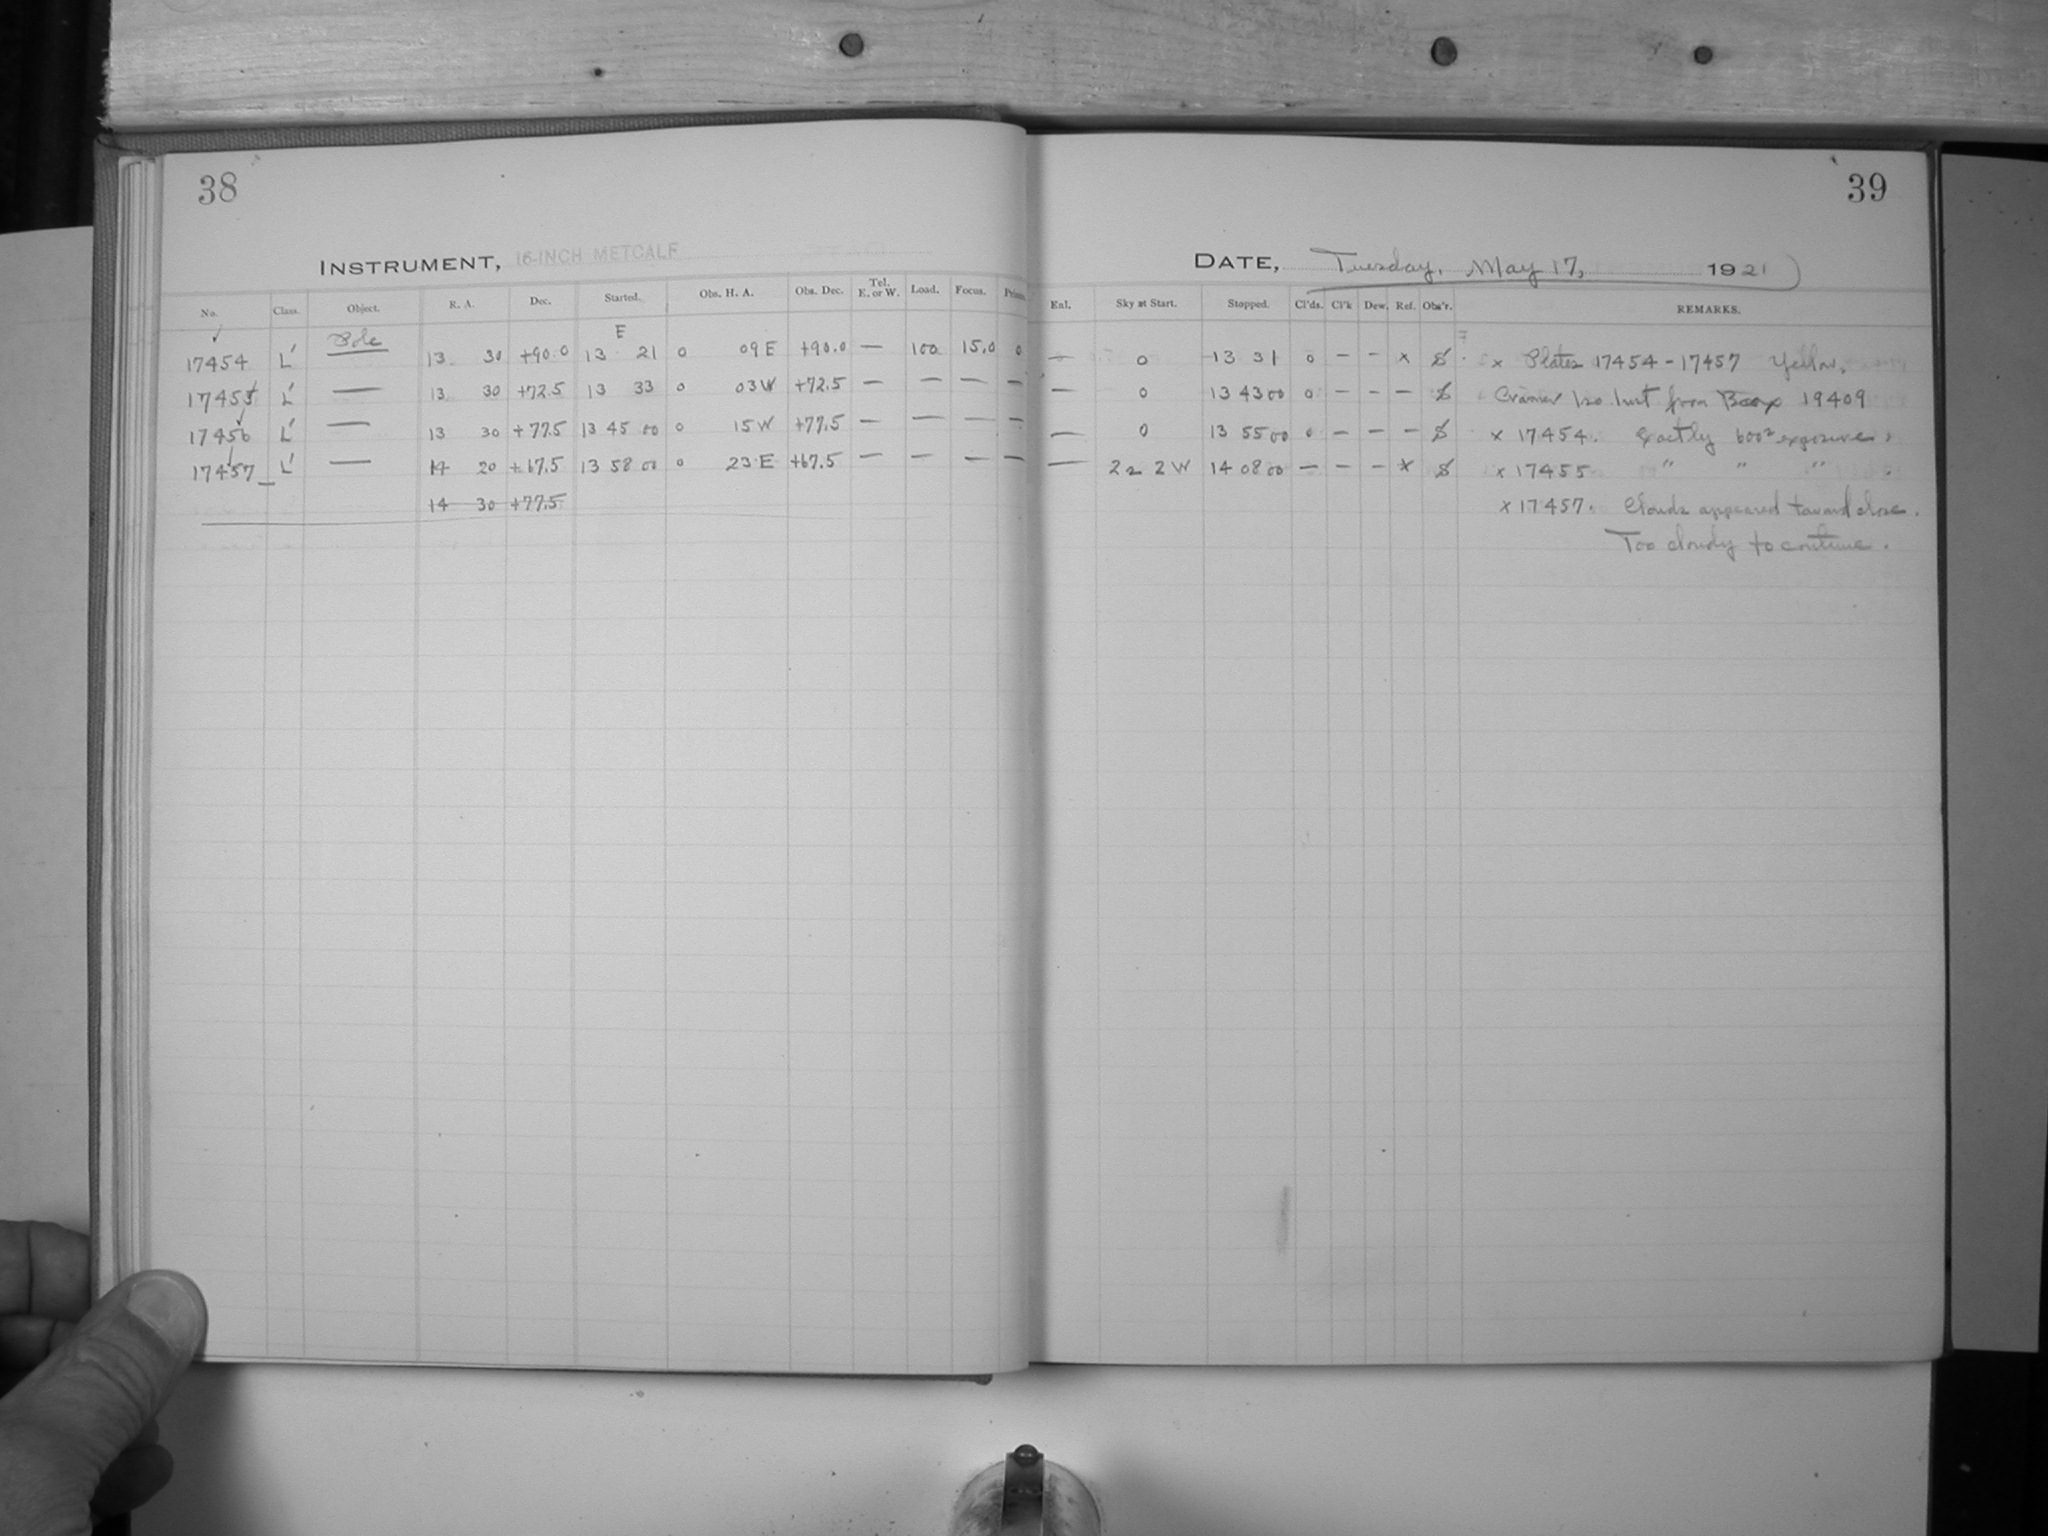 38
39
INSTRUMENT, 16-INCH METCALF
DATE, Tuesday, May 17, 1921
No. Class. Object. R. A. Dec. Started. Obs. H. A. Obs. Dec. Tel. E. or W. Load. Focus. Enl. Sky at Start. Stopped. Cl'ds. Cl'k Dew. Ref. Obs'r. REMARKS.
E
17454 L' Pole 13 30 +90.0 13 21 0 09 E +90.0 — 100 15.0 0 — 0 13 31 0 — — x S x Plates 17454-17457 Yellow,
17455 L' — 13 30 +72.5 13 33 0 03 W +72.5 — — — — — 0 13 43 00 0 — — — S Cramer Iso Inst from Box 19409
17456 L' — 13 30 +77.5 13 45 00 0 15 W +77.5 — — — — — 0 13 55 00 0 — — — S x 17454. Exactly 600s exposure.
17457 L' — 14 20 +67.5 13 58 00 0 23 E +67.5 — — — — — 2 2 W 14 08 00 — — — x S x 17455 " " " .
14 30 +77.5 x 17457. Clouds appeared toward close.
Too cloudy to continue.